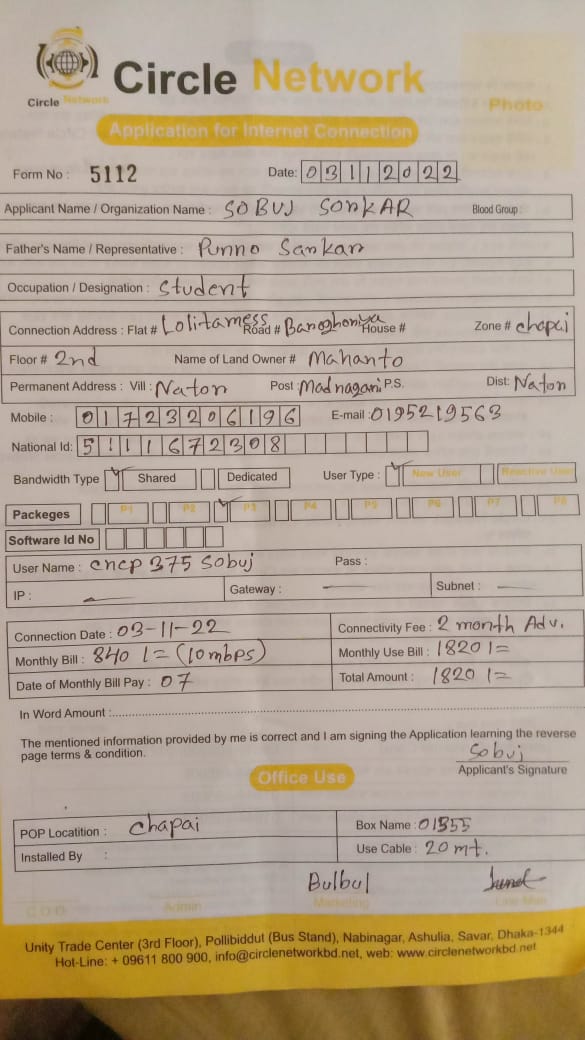 Circle Network
Circle Network
Photo
Application for Internet Connection
Form No : 5112 Date: 03112022
Applicant Name / Organization Name : SOBUJ SONKAR Blood Group :
Father's Name / Representative : Punno Sankar
Occupation / Designation : Student
Connection Address : Flat # Lolitamess Road # Baroghoriya House # Zone # chapai
Floor # 2nd Name of Land Owner # Mahanto
Permanent Address : Vill : Nator Post : P.S. Dist: Nator
Mobile : 01723206196 E-mail : 0195219563
National Id: 5111672308
Bandwidth Type Shared Dedicated User Type : New User Reactive User
Packeges P1 P2 P3 P4 P5 P6 P7 P8
Software Id No
User Name : cncp 375 Sobuj Pass :
IP : — Gateway : — Subnet : —
Connection Date : 03-11-22 Connectivity Fee : 2 month Adv.
Monthly Bill : 840/= (10mbps) Monthly Use Bill : 1820/=
Date of Monthly Bill Pay : 07 Total Amount : 1820/=
In Word Amount :
The mentioned information provided by me is correct and I am signing the Application learning the reverse
page terms & condition.
Sobuj
Applicant's Signature
Office Use
POP Locatition : Chapai Box Name : 01355
Installed By : Use Cable : 20 mt.
Bulbul
C.O.O Admin Marketing Line Man
Unity Trade Center (3rd Floor), Pollibiddut (Bus Stand), Nabinagar, Ashulia, Savar, Dhaka-1344
Hot-Line: + 09611 800 900, info@circlenetworkbd.net, web: www.circlenetworkbd.net